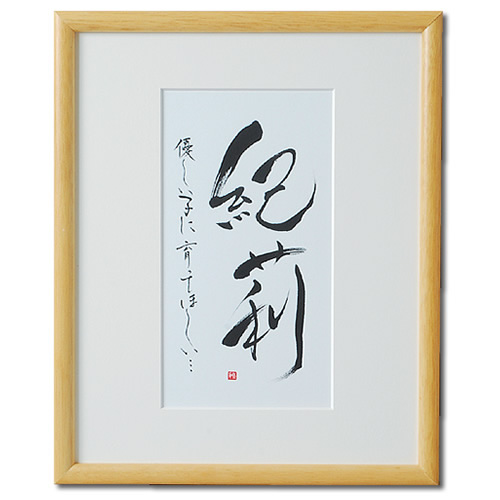 紀莉
優しい子に育ってほしい…